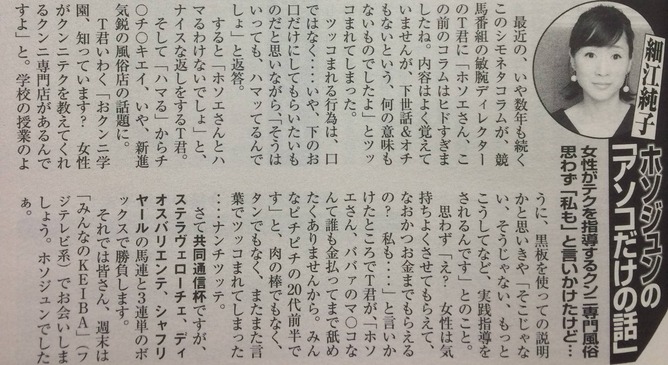 細江純子
ホソジュンの
「アソコだけの話」
女性がテクを指導するクンニ専門風俗
思わず「私も」と言いかけたけど…
最近の、いや数年も続く
このシモネタコラムが、競
馬番組の敏腕ディレクター
のT君に「ホソエさん、こ
の前のコラムはヒドすぎま
したね。内容はよく覚えて
いませんが、下世話&オチ
もないという、何の意味も
ないものでしたよ」とツッ
コまれてしまった。
ツッコまれる行為は、口
ではなく‥‥いや、下のお
口だけにしてもらいたいも
のだと思いながら「そうは
いっても、ハマってるんで
しょ」と返答。
すると「ホソエさんとハ
マるわけないでしょ」と、
ナイスな返しをするT君。
そして「ハマる」からチ
〇チ〇キエイ、いや、新進
気鋭の風俗店の話題に。
T君いわく「おクンニ学
園、知っています? 女性
がクンニテクを教えてくれ
るクンニ専門店があるんで
すよ」と。学校の授業のよ
うに、黒板を使っての説明
かと思いきや「そこじゃな
い、そうじゃない、もっと
こうしてなど、実践指導を
されるんです」とのこと。
思わず「え? 女性は気
持ちよくさせてもらえて、
なおかつお金までもらえる
の? 私も‥‥」と言いか
けたところでT君が、「ホソ
エさん、ババァのマ〇コな
んて誰も金払ってまで舐め
たくありませんから。みん
なピチピチの20代前半で
す」と、肉の棒でもなく、
タンでもなく、またまた言
葉でツッコまれてしまった
‥‥ナンチツッテ。
さて共同通信杯ですが、
ステラヴェローチェ、ディ
オスバリエンテ、シャフリ
ヤールの馬連と3連単のボ
ックスで勝負します。
それでは皆さん、週末は
「みんなのKEIBA」(フ
ジテレビ系)でお会いしま
しょう。ホソジュンでした
ぁ。